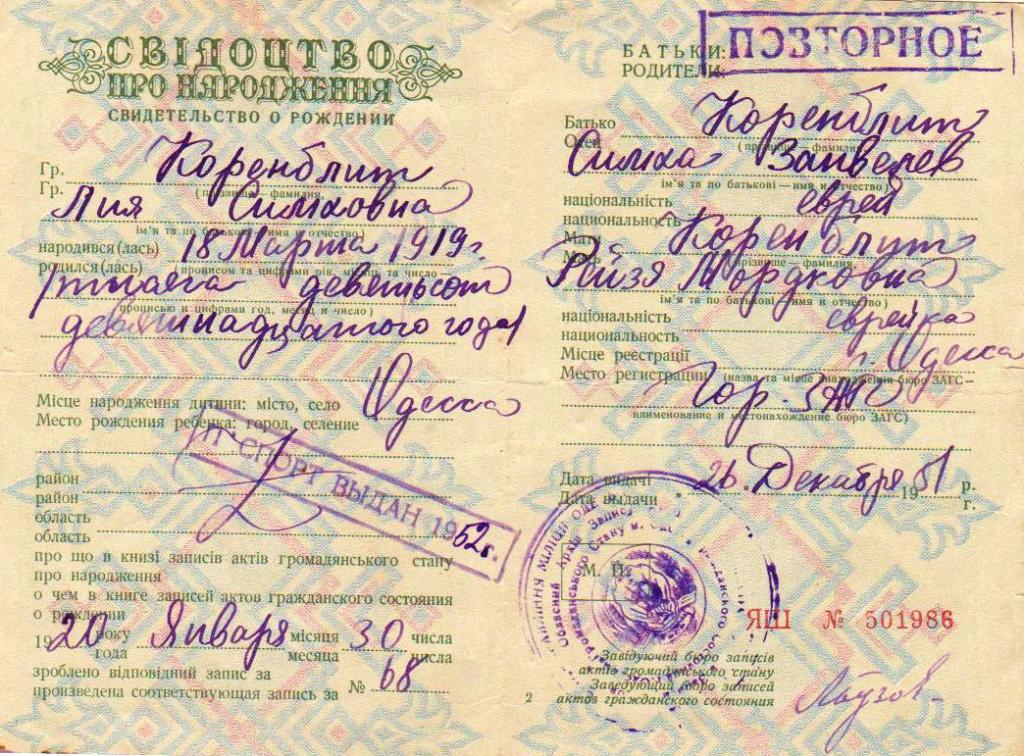 СВІДОЦТВО
ПРО НАРОДЖЕННЯ
СВИДЕТЕЛЬСТВО О РОЖДЕНИИ
Гр. Коренблит
Гр. (прізвище — фамилия)
Лия Симховна
ім'я та по батькові — имя и отчество)
народився(лась) 18 Марта 1919 г.
родился(лась) (прописом та цифрами рік, місяць та число —
тысяча девятьсот
прописью и цифрами год, месяц и число)
девятнадцатого года
Місце народження дитини: місто, село Одесса
Место рождения ребенка: город, селение
ПАСПОРТ ВЫДАН 1952 г.
район
район
область
область
про що в книзі записів актів громадянського стану
про народження
о чем в книге записей актов гражданского состояния
о рождении
1920 року Января місяця 30 числа
года месяца числа
зроблено відповідний запис за
произведена соответствующая запись за № 68
ПОВТОРНОЕ
БАТЬКИ:
РОДИТЕЛИ:
Батько Коренблит
Отец (прізвище — фамилия)
Симха
ім'я та по батькові — имя и отчество)
національність еврей
национальность
Мати Коренблит
Мать прізвище — фамилия
Рейзя Мордковна
ім'я та по батькові (имя и отчество)
національність еврейка
национальность
Місце реєстрації г. Одесса
Место регистрации (назва та місце знаходження бюро ЗАГС —
Гор. ЗАГС
наименование и местонахождение бюро ЗАГС)
Дата видачі 26 Декабря 1951 р.
Дата выдачи г.
М. П.
ЯШ № 501986
Завідуючий бюро записів
актів громадянського стану
Заведующий бюро записей
2 актов гражданского состояния